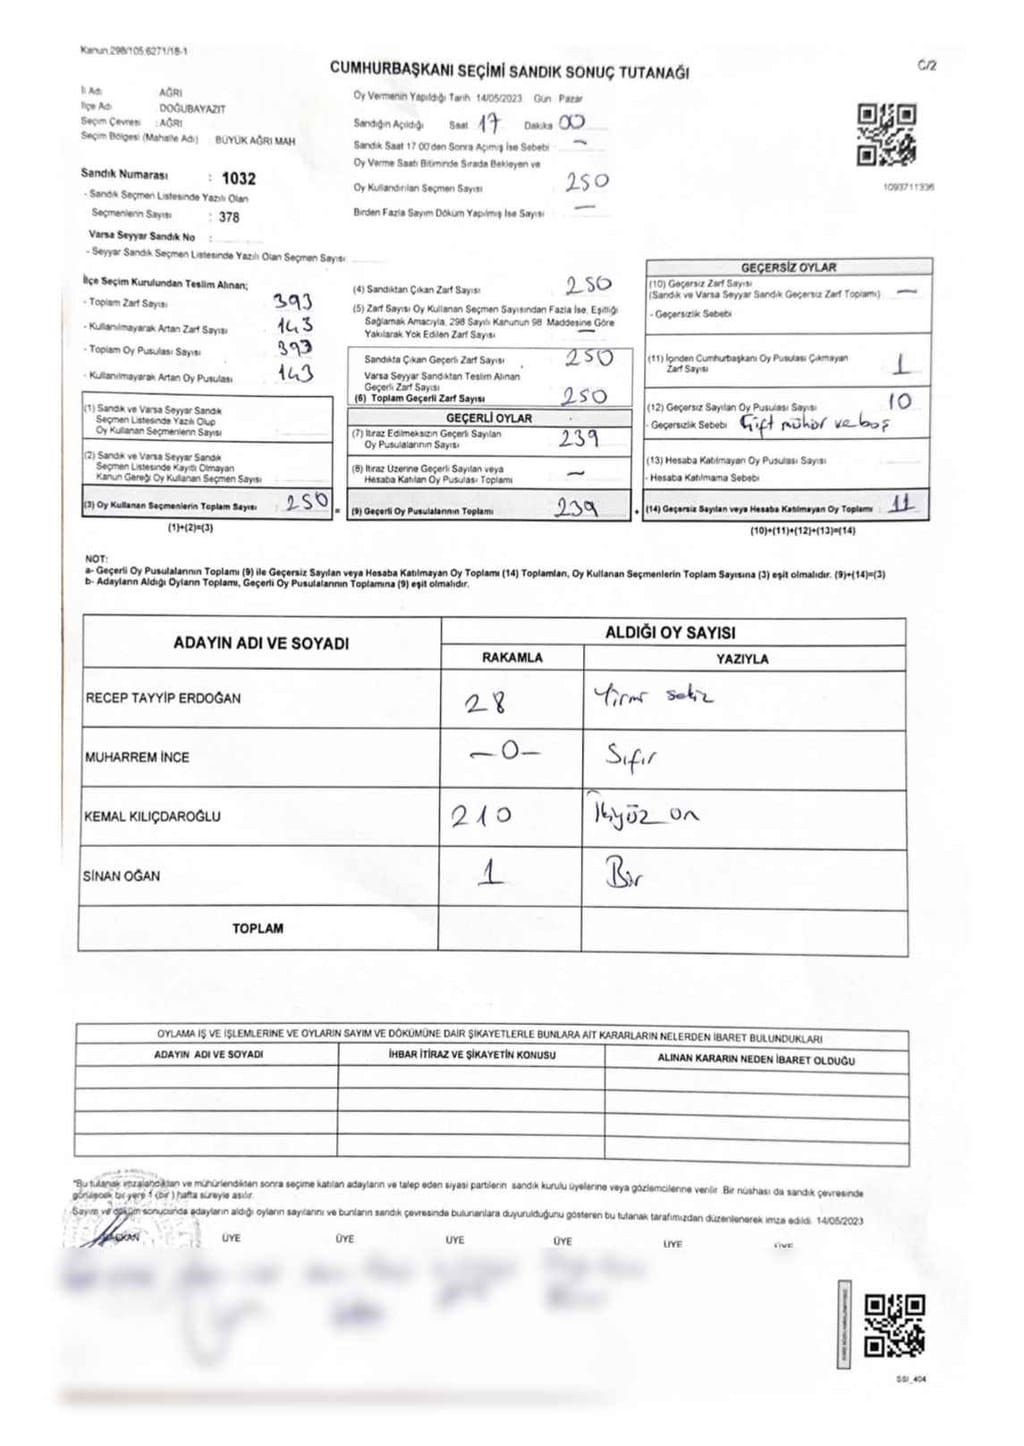 Kanun:298/105.6271/18-1
CUMHURBAŞKANI SEÇİMİ SANDIK SONUÇ TUTANAĞI
C/2
İl Adı AĞRI
İlçe Adı DOĞUBAYAZIT
Seçim Çevresi : AĞRI
Seçim Bölgesi (Mahalle Adı) BÜYÜK AĞRI MAH
Sandık Numarası : 1032
- Sandık Seçmen Listesinde Yazılı Olan
Seçmenlerin Sayısı : 378
Varsa Seyyar Sandık No :
- Seyyar Sandık Seçmen Listesinde Yazılı Olan Seçmen Sayısı
Oy Vermenin Yapıldığı Tarih 14/05/2023 Gün Pazar
Sandığın Açıldığı Saat 17 Dakika 00
Sandık Saat 17 00'den Sonra Açımış İse Sebebi —
Oy Verme Saati Bitiminde Sırada Bekleyen ve
Oy Kullandırılan Seçmen Sayısı 250
Birden Fazla Sayım Döküm Yapılmış İse Sayısı —
1093711336
İlçe Seçim Kurulundan Teslim Alınan;
- Toplam Zarf Sayısı 393
- Kullanılmayarak Artan Zarf Sayısı 143
- Toplam Oy Pusulası Sayısı 393
- Kullanılmayarak Artan Oy Pusulası 143
(1) Sandık ve Varsa Seyyar Sandık
Seçmen Listesinde Yazılı Olup
Oy Kullanan Seçmenlerin Sayısı
(2) Sandık ve Varsa Seyyar Sandık
Seçmen Listesinde Kayıtlı Olmayan
Kanun Gereği Oy Kullanan Seçmen Sayısı
(3) Oy Kullanan Seçmenlerin Toplam Sayısı 250 =
(1)+(2)=(3)
(4) Sandıktan Çıkan Zarf Sayısı 250
(5) Zarf Sayısı Oy Kullanan Seçmen Sayısından Fazla İse, Eşitliği
Sağlamak Amacıyla, 298 Sayılı Kanunun 98 Maddesine Göre
Yakılarak Yok Edilen Zarf Sayısı —
Sandıkta Çıkan Geçerli Zarf Sayısı 250
Varsa Seyyar Sandıktan Teslim Alınan
Geçerli Zarf Sayısı
(6) Toplam Geçerli Zarf Sayısı 250
GEÇERLİ OYLAR
(7) İtiraz Edilmeksizin Geçerli Sayılan
Oy Pusulalarının Sayısı 239
(8) İtiraz Üzerine Geçerli Sayılan veya
Hesaba Katılan Oy Pusulası Toplamı —
(9) Geçerli Oy Pusulalarının Toplamı 239 +
GEÇERSİZ OYLAR
(10) Geçersiz Zarf Sayısı
(Sandık ve Varsa Seyyar Sandık Geçersiz Zarf Toplamı) —
- Geçersizlik Sebebi
(11) İçinden Cumhurbaşkanı Oy Pusulası Çıkmayan
Zarf Sayısı 1
(12) Geçersiz Sayılan Oy Pusulası Sayısı 10
- Geçersizlik Sebebi Çift mühür ve boş
(13) Hesaba Katılmayan Oy Pusulası Sayısı
- Hesaba Katılmama Sebebi
(14) Geçersiz Sayılan veya Hesaba Katılmayan Oy Toplamı 11
(10)+(11)+(12)+(13)=(14)
NOT:
a- Geçerli Oy Pusulalarının Toplamı (9) ile Geçersiz Sayılan veya Hesaba Katılmayan Oy Toplamı (14) Toplamları, Oy Kullanan Seçmenlerin Toplam Sayısına (3) eşit olmalıdır. (9)+(14)=(3)
b- Adayların Aldığı Oyların Toplamı, Geçerli Oy Pusulalarının Toplamına (9) eşit olmalıdır.
ADAYIN ADI VE SOYADI ALDIĞI OY SAYISI
RAKAMLA YAZIYLA
RECEP TAYYİP ERDOĞAN 28 Yirmi sekiz
MUHARREM İNCE —0— Sıfır
KEMAL KILIÇDAROĞLU 210 İkiyüz on
SİNAN OĞAN 1 Bir
TOPLAM
OYLAMA İŞ VE İŞLEMLERİNE VE OYLARIN SAYIM VE DÖKÜMÜNE DAİR ŞİKAYETLERLE BUNLARA AİT KARARLARIN NELERDEN İBARET BULUNDUKLARI
ADAYIN ADI VE SOYADI İHBAR İTİRAZ VE ŞİKAYETİN KONUSU ALINAN KARARIN NEDEN İBARET OLDUĞU
*Bu tutanak imzalandıktan ve mühürlendikten sonra seçime katılan adayların ve talep eden siyasi partilerin sandık kurulu üyelerine veya gözlemcilerine verilir. Bir nüshası da sandık çevresinde
görülecek bir yere 1 (bir) hafta süreyle asılır.
Sayım ve döküm sonucunda adayların aldığı oyların sayılarını ve bunların sandık çevresinde bulunanlara duyurulduğunu gösteren bu tutanak tarafımızdan düzenlenerek imza edildi. 14/05/2023
BAŞKAN ÜYE ÜYE ÜYE ÜYE ÜYE ÜYE
SSI_404